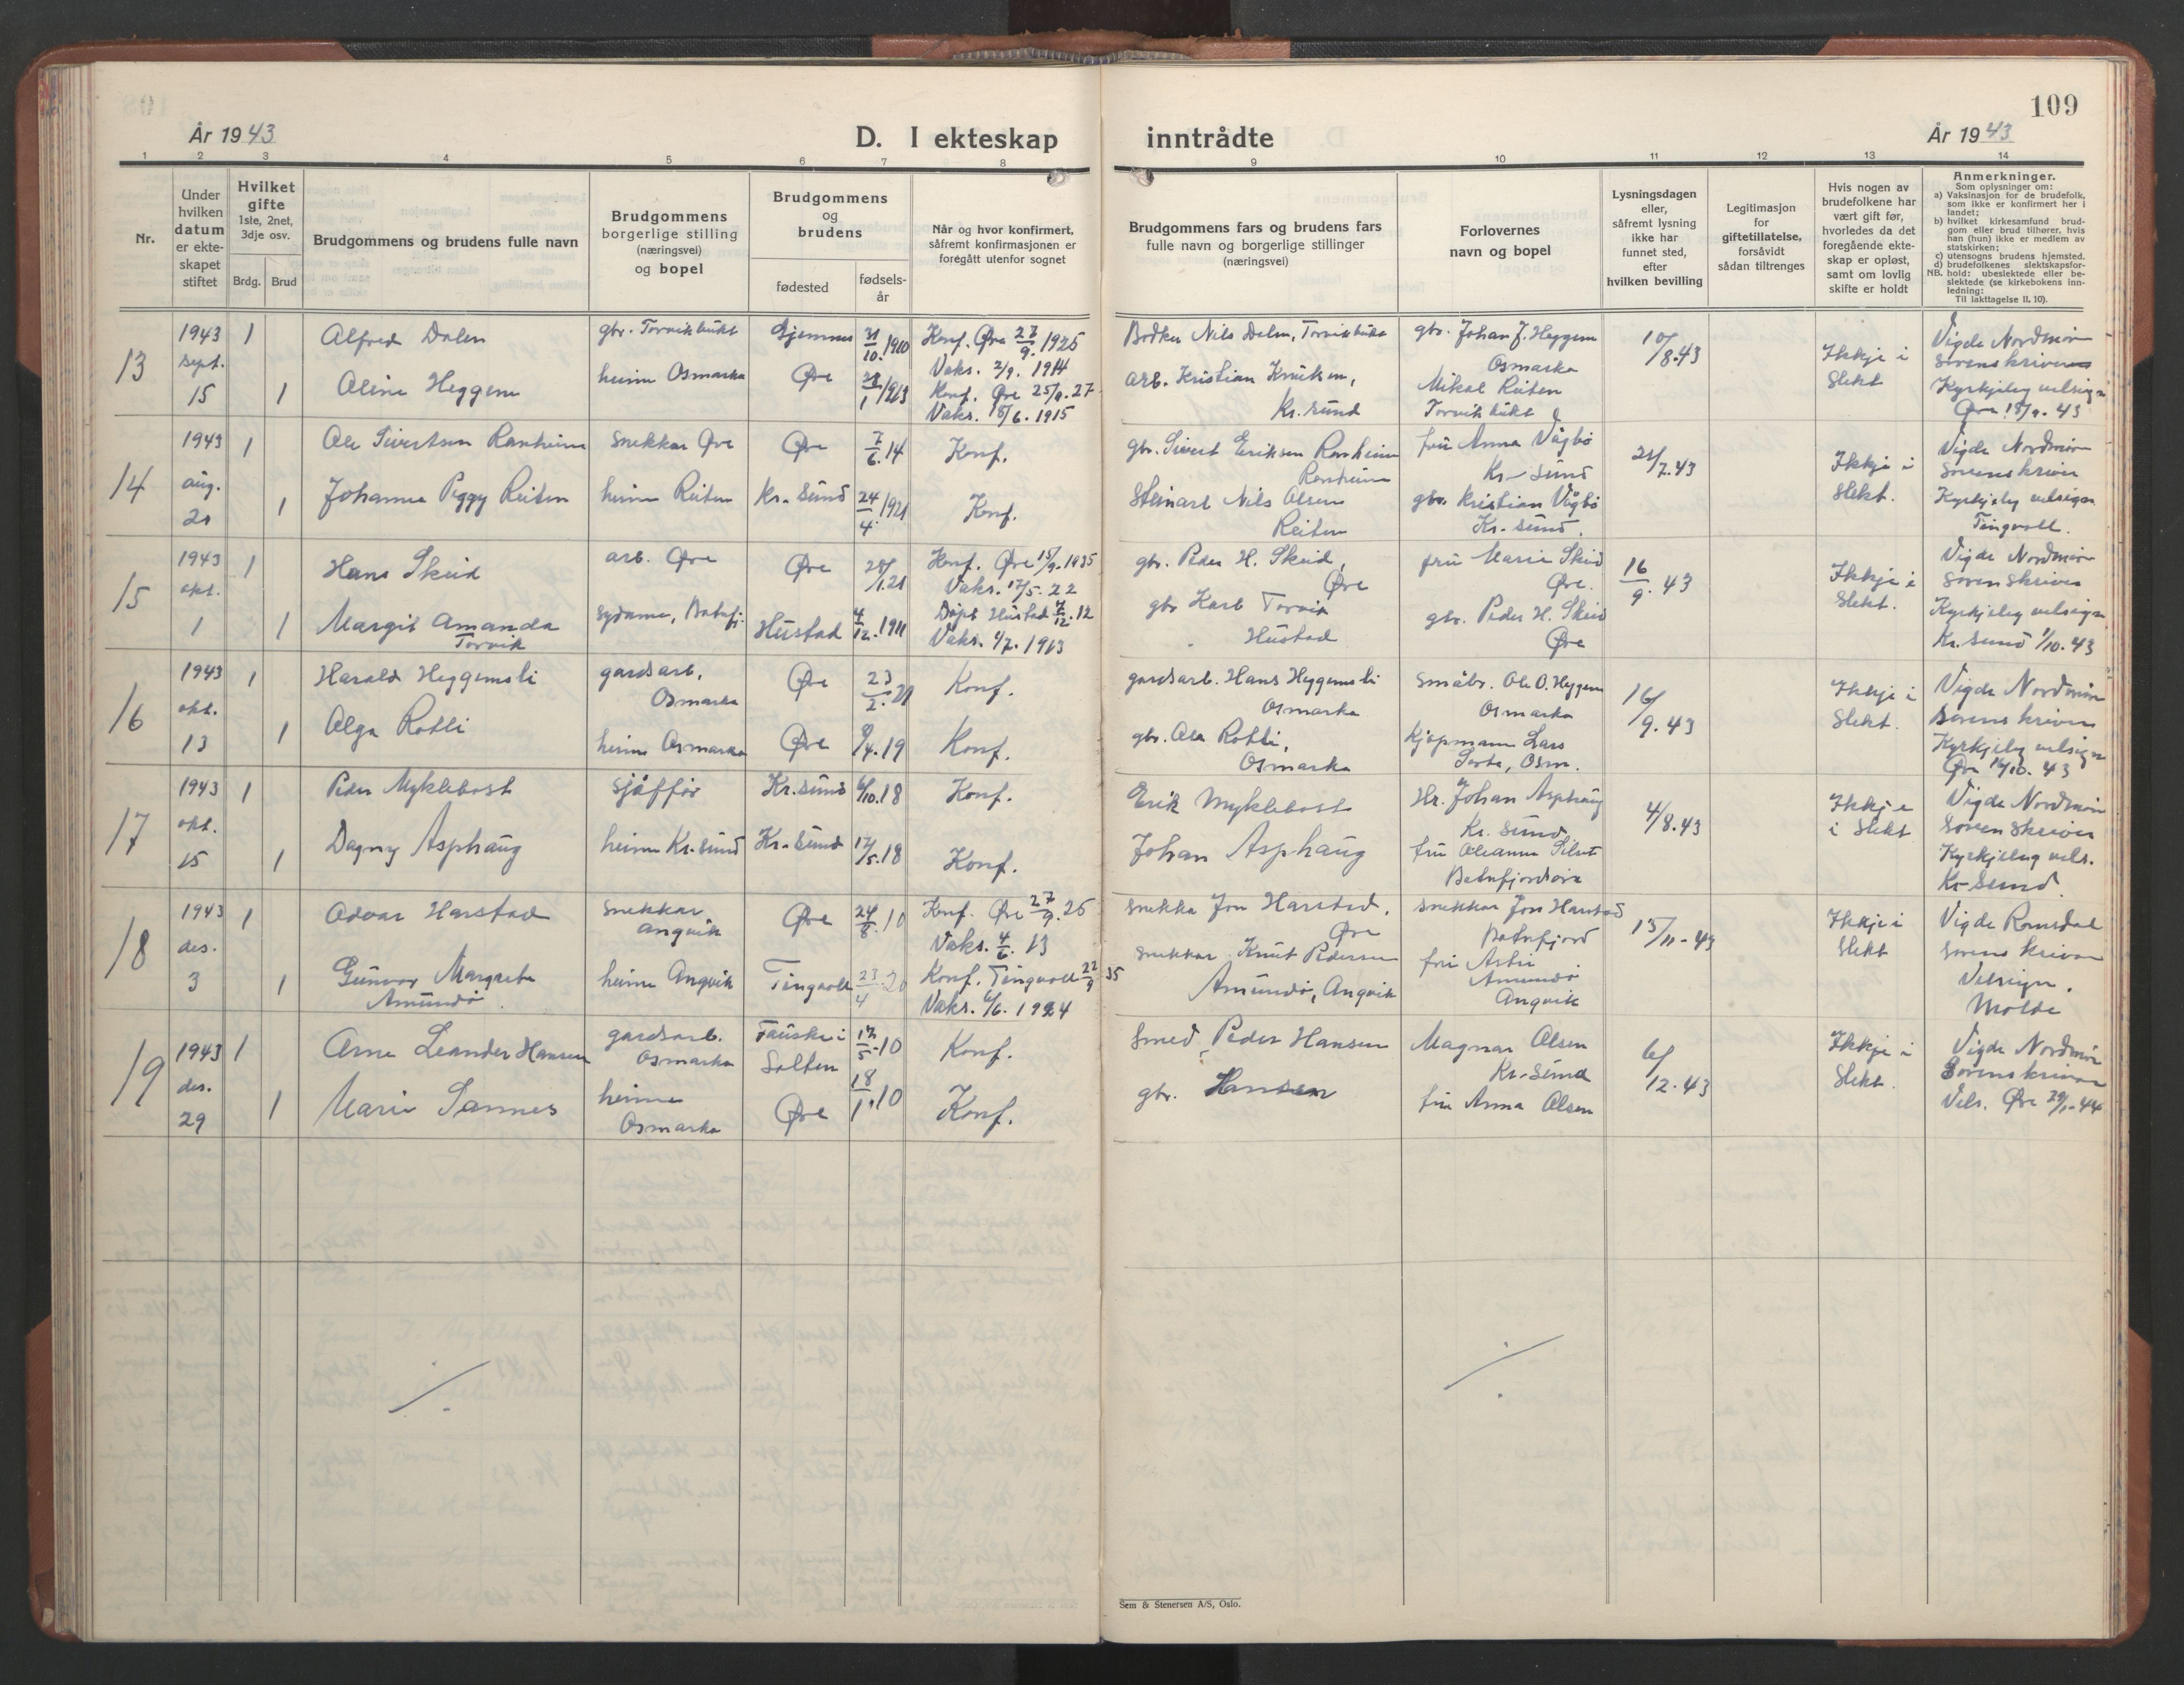 109
År 1943
D. I ekteskap inntrådte
År 1943
1 2 3 4 5 6 7 8 9 10 11 12 13 14
Nr.
Under
hvilken
datum
er ekte-
skapet
stiftet
Hvilket
gifte
1ste, 2net,
3dje osv.
Brdg. Brud
Brudgommens og brudens fulle navn
Brudgommens
borgerlige stilling
(næringsvei)
og bopel
Brudgommens
og
brudens
fødested
fødsels-
år
Når og hvor konfirmert,
såfremt konfirmasjonen er
foregått utenfor sognet
Brudgommens fars og brudens fars
fulle navn og borgerlige stillinger
(næringsvei)
Forlovernes
navn og bopel
Lysningsdagen
eller,
såfremt lysning
ikke har
funnet sted,
efter
hvilken bevilling
Legitimasjon
for
giftetillatelse,
forsåvidt
sådan tiltrenges
Hvis nogen av
brudefolkene har
vært gift før,
hvorledes da det
foregående ekte-
skap er opløst,
samt om lovlig
skifte er holdt
Anmerkninger.
Som oplysninger om:
a) Vaksinasjon for de brudefolk,
som ikke er konfirmert her i
landet;
b) hvilket kirkesamfund brud-
gom eller brud tilhører, hvis
han (hun) ikke er medlem av
statskirken;
c) utensogns brudens hjemsted.
d) brudefolkenes slektskapsfor-
NB. hold: ubeslektede eller be-
slektede (se kirkebokens inn-
ledning:
Til iakttagelse II, 10).
13
1943
sept.
15
1
1
Alfred Dalen
Aline Heggem
gbr. Torvikbukt
heime Osmarka
Gjemnes
Øre
31/10.1910
1913
Konf. Øre 27/9. 1925
Vaks. 2/9. 1914
Konf. Øre 25/9. 27
Vaks. 15/6. 1915
Bødker Nils Dalen, Torvikbukt
arb. Kristian Knutsen,
Kr. sund
gbr. Johan J. Heggem
Osmarka
Mikal Reiten
Torvikbukt
10/8.43
Ikkje i
slekt
Vigde Nordmøre
sorenskrivar
Kyrkjeleg velsign
Øre 15/9. 43
14
1943
aug.
21
1
1
Ole Sivertsen Ranheim
Johanna Peggy Reiten
Snekkar Øre
heime Reiten
Øre
Kr. sund
7/6.14
24/4.1921
Konf.
Konf.
gbr. Sivert Eriksen Ranheim
Ranheim
Steinarb Nils Olsen
Reiten
fru Anna Vågbø
Kr-sund
gbr. Kristian Vågbø
Kr. sund.
21/7.43
Ikkje i
slekt.
Vigde Nordmøre
Sorenskrivar
Kyrkjeleg velsign
Tingvoll.
15
1943
okt.
1
1
1
Hans Skeid
Margit Amanda
Torvik
arb. Øre
sydame, Batnfj.
Øre
Hustad
28/1.21
4/12.1911
Konf. Øre 15/9.1935
Vaks. 17/5. 22
Døpt Hustad 7/12.12
Vaks. 4/7. 1913
gbr. Peder H. Skeid,
Øre
gbr Karl Torvik
Hustad
fru Marie Skeid
Øre.
gbr. Peder H. Skeid
Øre
16/9. 43
Ikkje i
slekt.
Vigde Nordmøre
sorenskrivar
Kyrkjeleg velsign
Kr. sund 1/10. 43
16
1943
okt.
13
1
1
Harald Heggemsli
Olga Rotli
gardsarb.
Osmarka
heime Osmarka
Øre
Øre
23/2.21
9/4.19
Konf.
Konf.
gardsarb. Hans Heggemsli
Osmarka
gbr. Ola Rotli,
Osmarka
Småbr. Ole O. Heggem
Osmarka
kjøpmann Lars
, Osm.
16/9.43
Ikkje i
slekt.
Vigde Nordmøre
sorenskrivar
Kyrkjeleg velsign
Øre 14/10. 43
17
1943
okt.
15
1
1
Peder Myklebost
Dagny Asphaug
sjåffør
heime Kr. sund
Kr. sund
Kr. sund
6/10.18
17/5.18
Konf.
Konf.
Erik Myklebost
Johan Asphaug
Hr. Johan Asphaug
Kr. sund
fru Oleanna
Batnfjordsøra
4/8.43
Ikkje
i slekt
Vigde Nordmøre
Sorenskrivar
Kyrkjeleg vels.
Kr-sund
18
1943
des.
3
1
1
Odvar Harstad
Gunvor Margrete
Amundø
Snekkar
Angvik
heime Angvik
Øre
Tingvoll
24/8.10
23/4.20
Konf. Øre 27/9. 25
Vaks. 4/6. 13
Konf. Tingvoll 22/9 35
Vaks. 6/6. 1924
Snekkar Jon Harstad,
Øre
Snekkar Knut Pedersen
Amundø, Angvik
snekkar Jon Harstad
Batnfjord
fru Astri
Amundø
Angvik
15/11-43
Ikkje i
slekt
Vigde Romsdal
sorenskrivar
Velsign.
Molde
19
1943
des.
29
1
1
Arne Leander Hansen
Marie Sannes
gardsarb.
Osmarka
heime
Osmarka
Fauske i
Salten
Øre
17/5.10
18/1.10
Konf.
Konf.
Smed Peder Hansen
gbr. Hansen
Magnar Olsen
Kr-sund
fru Anna Olsen
6/12.43
Ikkje i
slekt.
Vigde Nordmøre
Sorenskrivar
Vels. Øre 29/1-44
Sem & Stenersen A/S, Oslo.